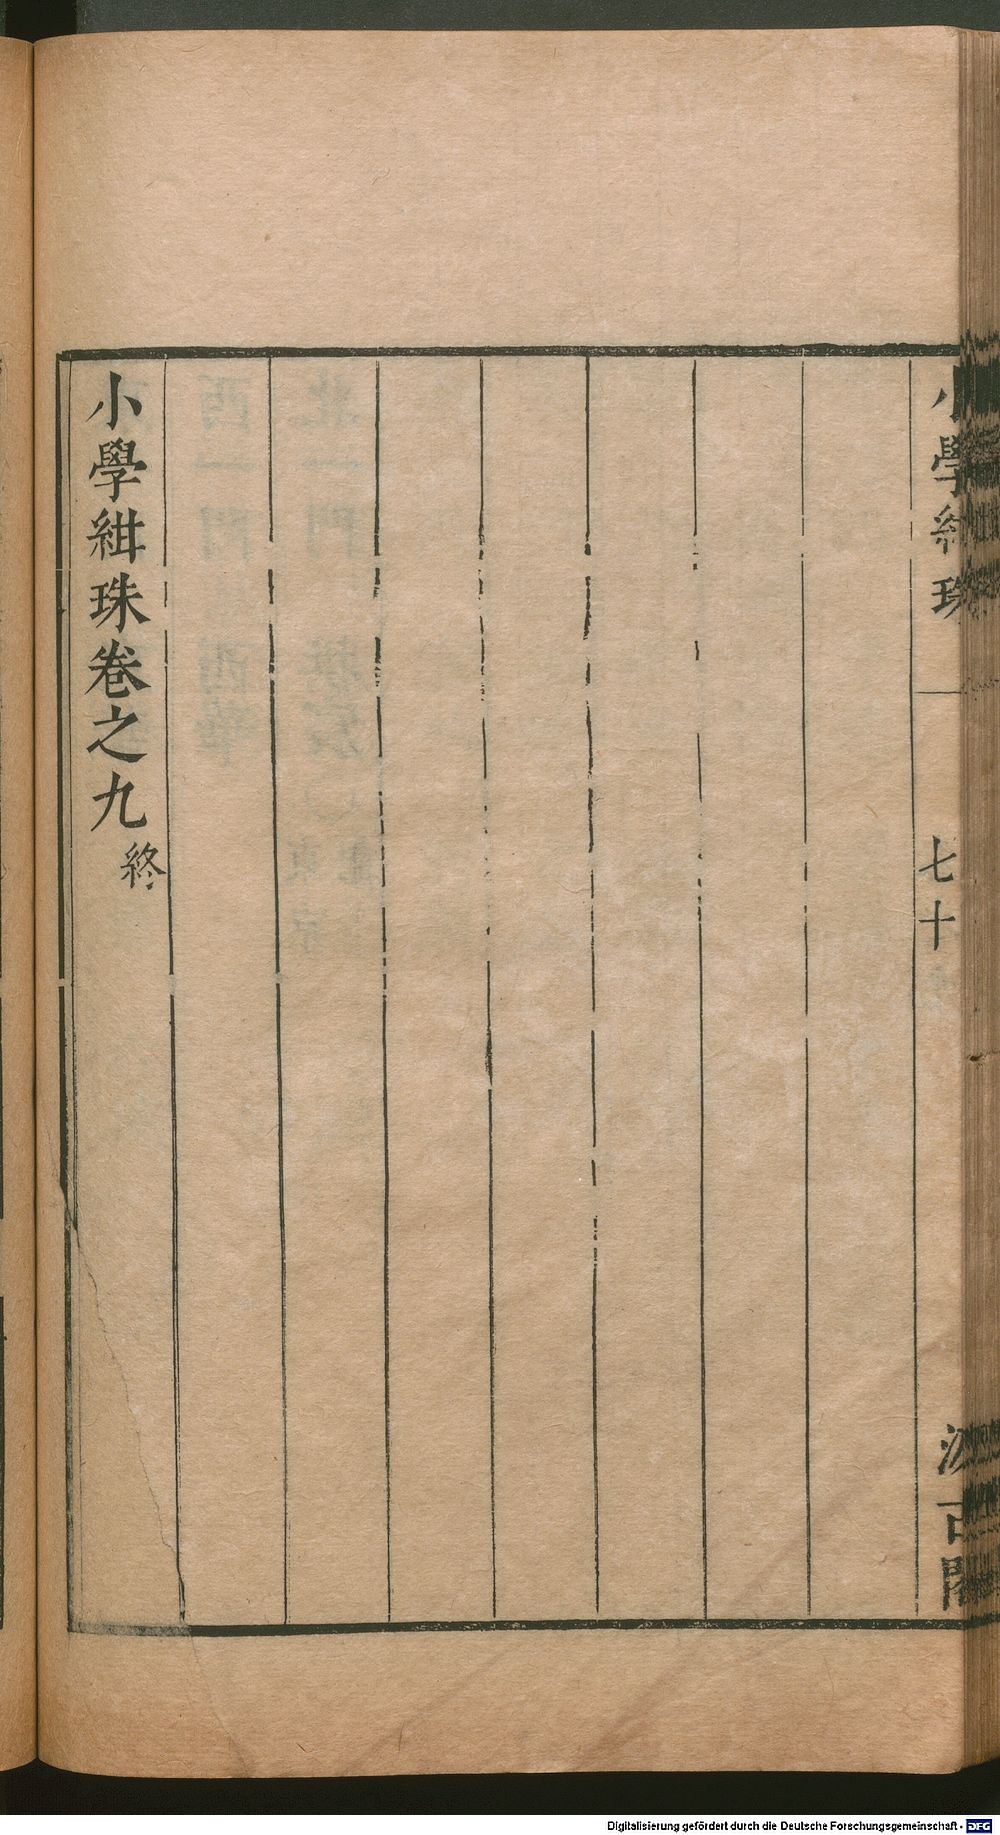 小學紺珠
七十
汲古閣
小學紺珠卷之九終
Digitalisierung gefördert durch die Deutsche Forschungsgemeinschaft - DFG